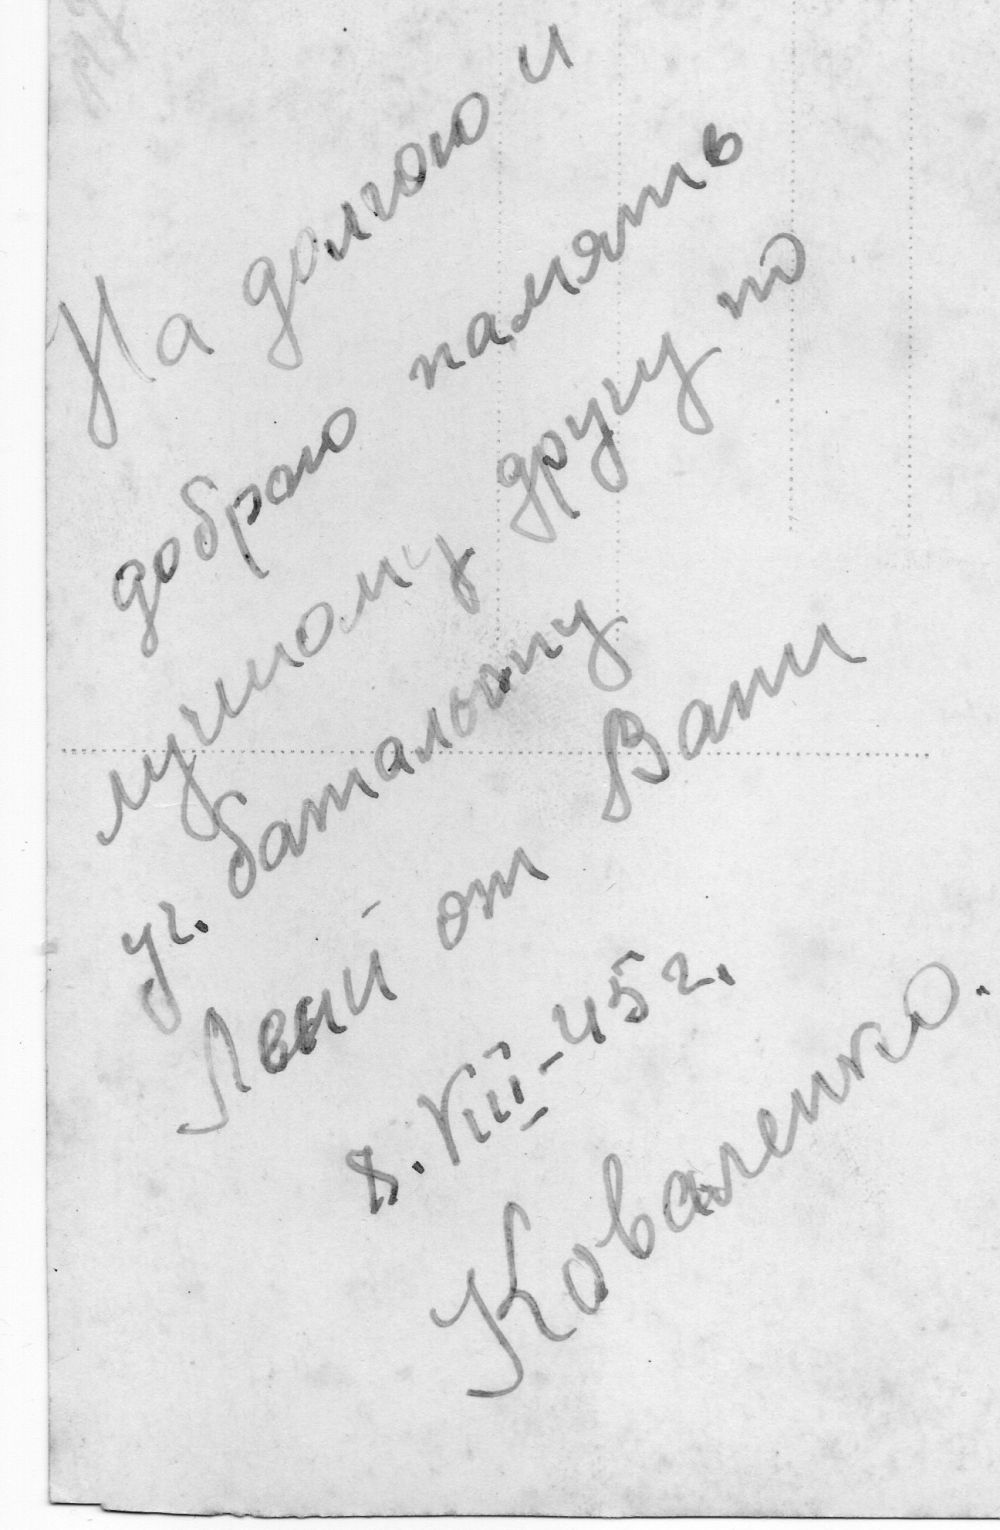 На долгою и
доброю память
лучшому другу по
уч. батальону
Лёни от Вани
8. VIII-45 г.
Коваленко.